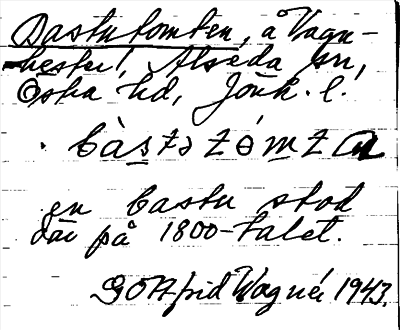 Bastutomten, å Vagn-
hester!, Alseda sn,
Östra hd, Jönk. l.
· bàs̱ŧə ŧómṯŧa
en bastu stod
där på 1800-talet.
Gottfrid Wagnér 1943.